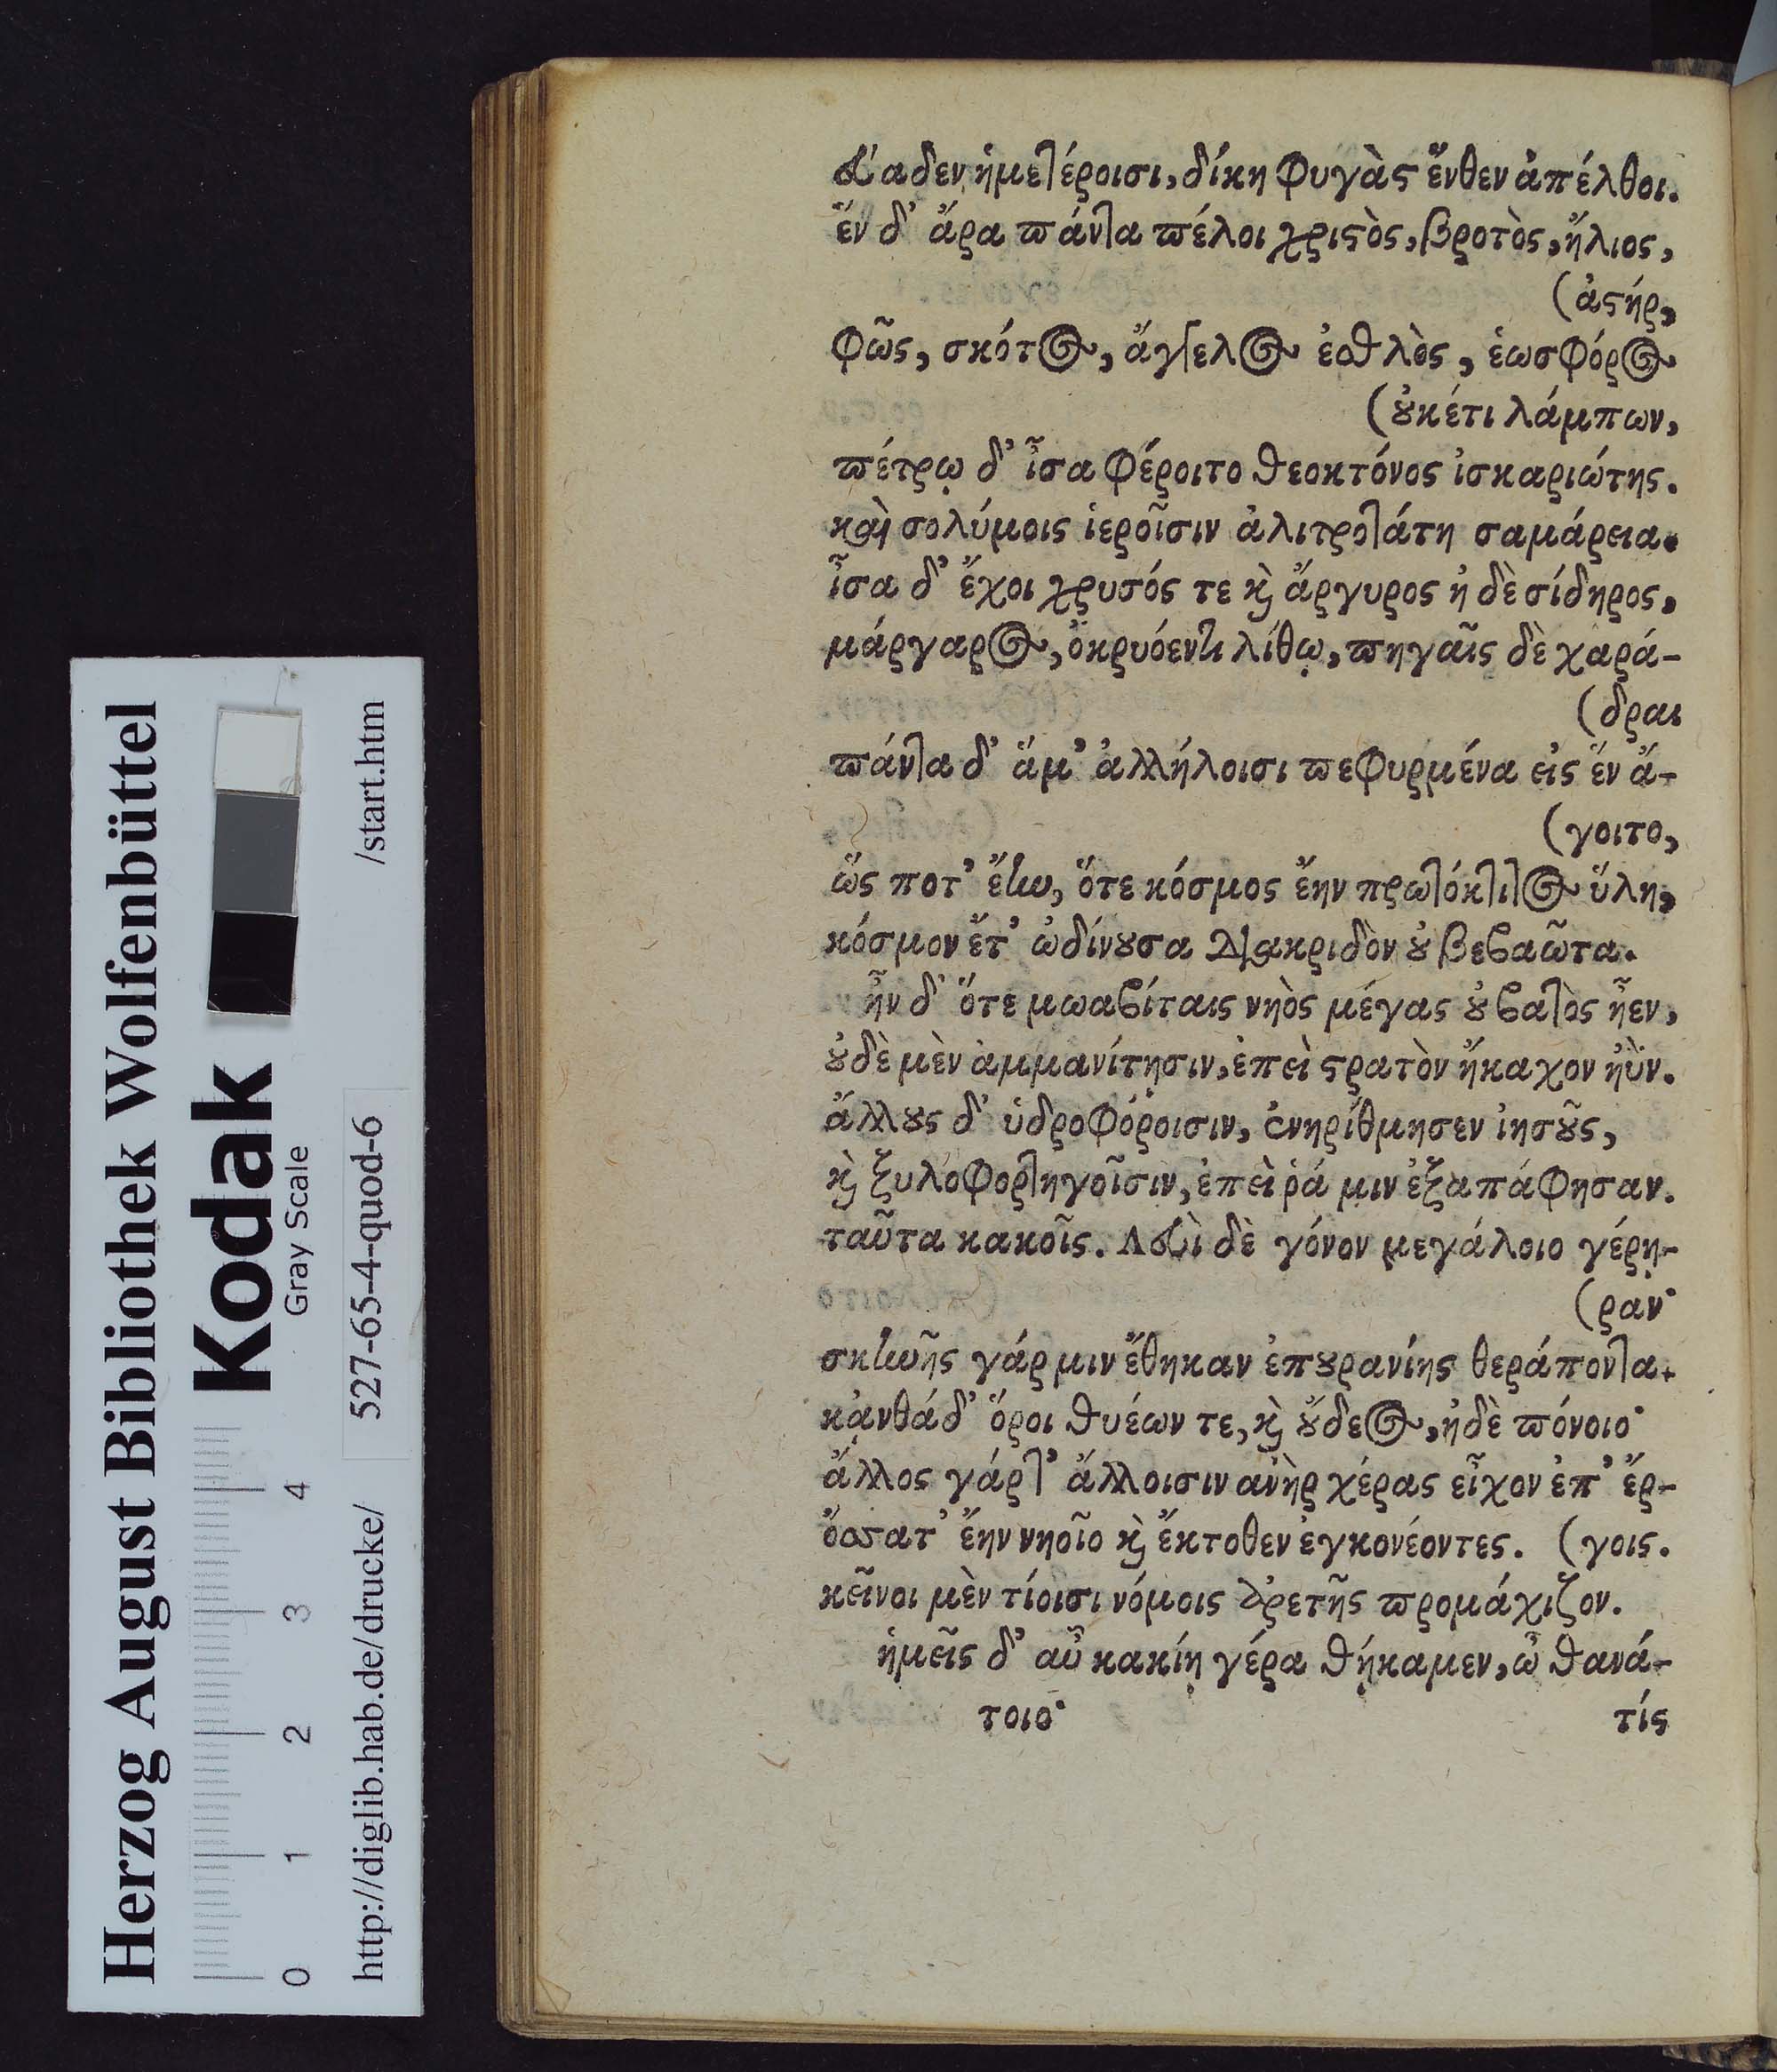 εὔαδεν ἡμετέροισι, δίκη φυγὰς ἔνθεν ἀπέλθοι.
ἓν δ' ἄρα πάντα πέλοι χριστὸς, βροτὸς, ἥλιος,
(ἀστήρ,
φῶς, σκότος, ἄγγελος ἐσθλὸς, ἑωσφόρος
(οὐκέτι λάμπων,
πέτρῳ δ' ἶσα φέροιτο θεοκτόνος ἰσκαριώτης.
καὶ σολύμοις ἱεροῖσιν ἀλιτροτάτη σαμάρεια.
ἶσα δ' ἔχοι χρυσός τε καὶ ἄργυρος ἠδὲ σίδηρος,
μάργαρος, ὀκρυόεντι λίθῳ, πηγαῖς δὲ χαρά-
(δραι
πάντα δ' ἅμ' ἀλλήλοισι πεφυρμένα εἰς ἓν ἄ-
(γοιτο,
ὥς ποτ' ἔην, ὅτε κόσμος ἔην πρωτόκτιτος ὕλη,
κόσμον ἔτ' ὠδίνουσα διακριδὸν οὐ βεβαῶτα.
ἦν δ' ὅτε μωαβίταις νηὸς μέγας οὐ βατὸς ἦεν,
οὐδὲ μὲν ἀμμανίτῃσιν, ἐπεὶ στρατὸν ἤκαχον ἠΰν.
ἄλλους δ' ὑδροφόροισιν, ἐνηρίθμησεν ἰησοῦς,
καὶ ξυλοφορτηγοῖσιν, ἐπεὶ ῥά μιν ἐξαπάφησαν.
ταῦτα κακοῖς. Λευὶ δὲ γόνον μεγάλοιο γέρη-
(ραν·
σκηνῆς γάρ μιν ἔθηκαν ἐπουρανίης θεράποντα.
κἀνθάδ' ὅροι θυέων τε, καὶ οὔδεος, ἠδὲ πόνοιο·
ἄλλος γάρ τ' ἄλλοισιν ἀνὴρ χέρας εἶχον ἐπ' ἔρ-
ὅσσατ' ἔην νηοῖο καὶ ἔκτοθεν ἐγκονέοντες. (γοις.
κεῖνοι μὲν τίοισι νόμοις ἀρετῆς προμάχιζον.
ἡμεῖς δ' αὖ κακίῃ γέρα θήκαμεν, ὦ θανά-
τοιο· τίς
Herzog August Bibliothek Wolfenbüttel
Kodak
Gray Scale
0 1 2 3 4
http://diglib.hab.de/drucke/ 527-65-4-quod-6 /start.htm